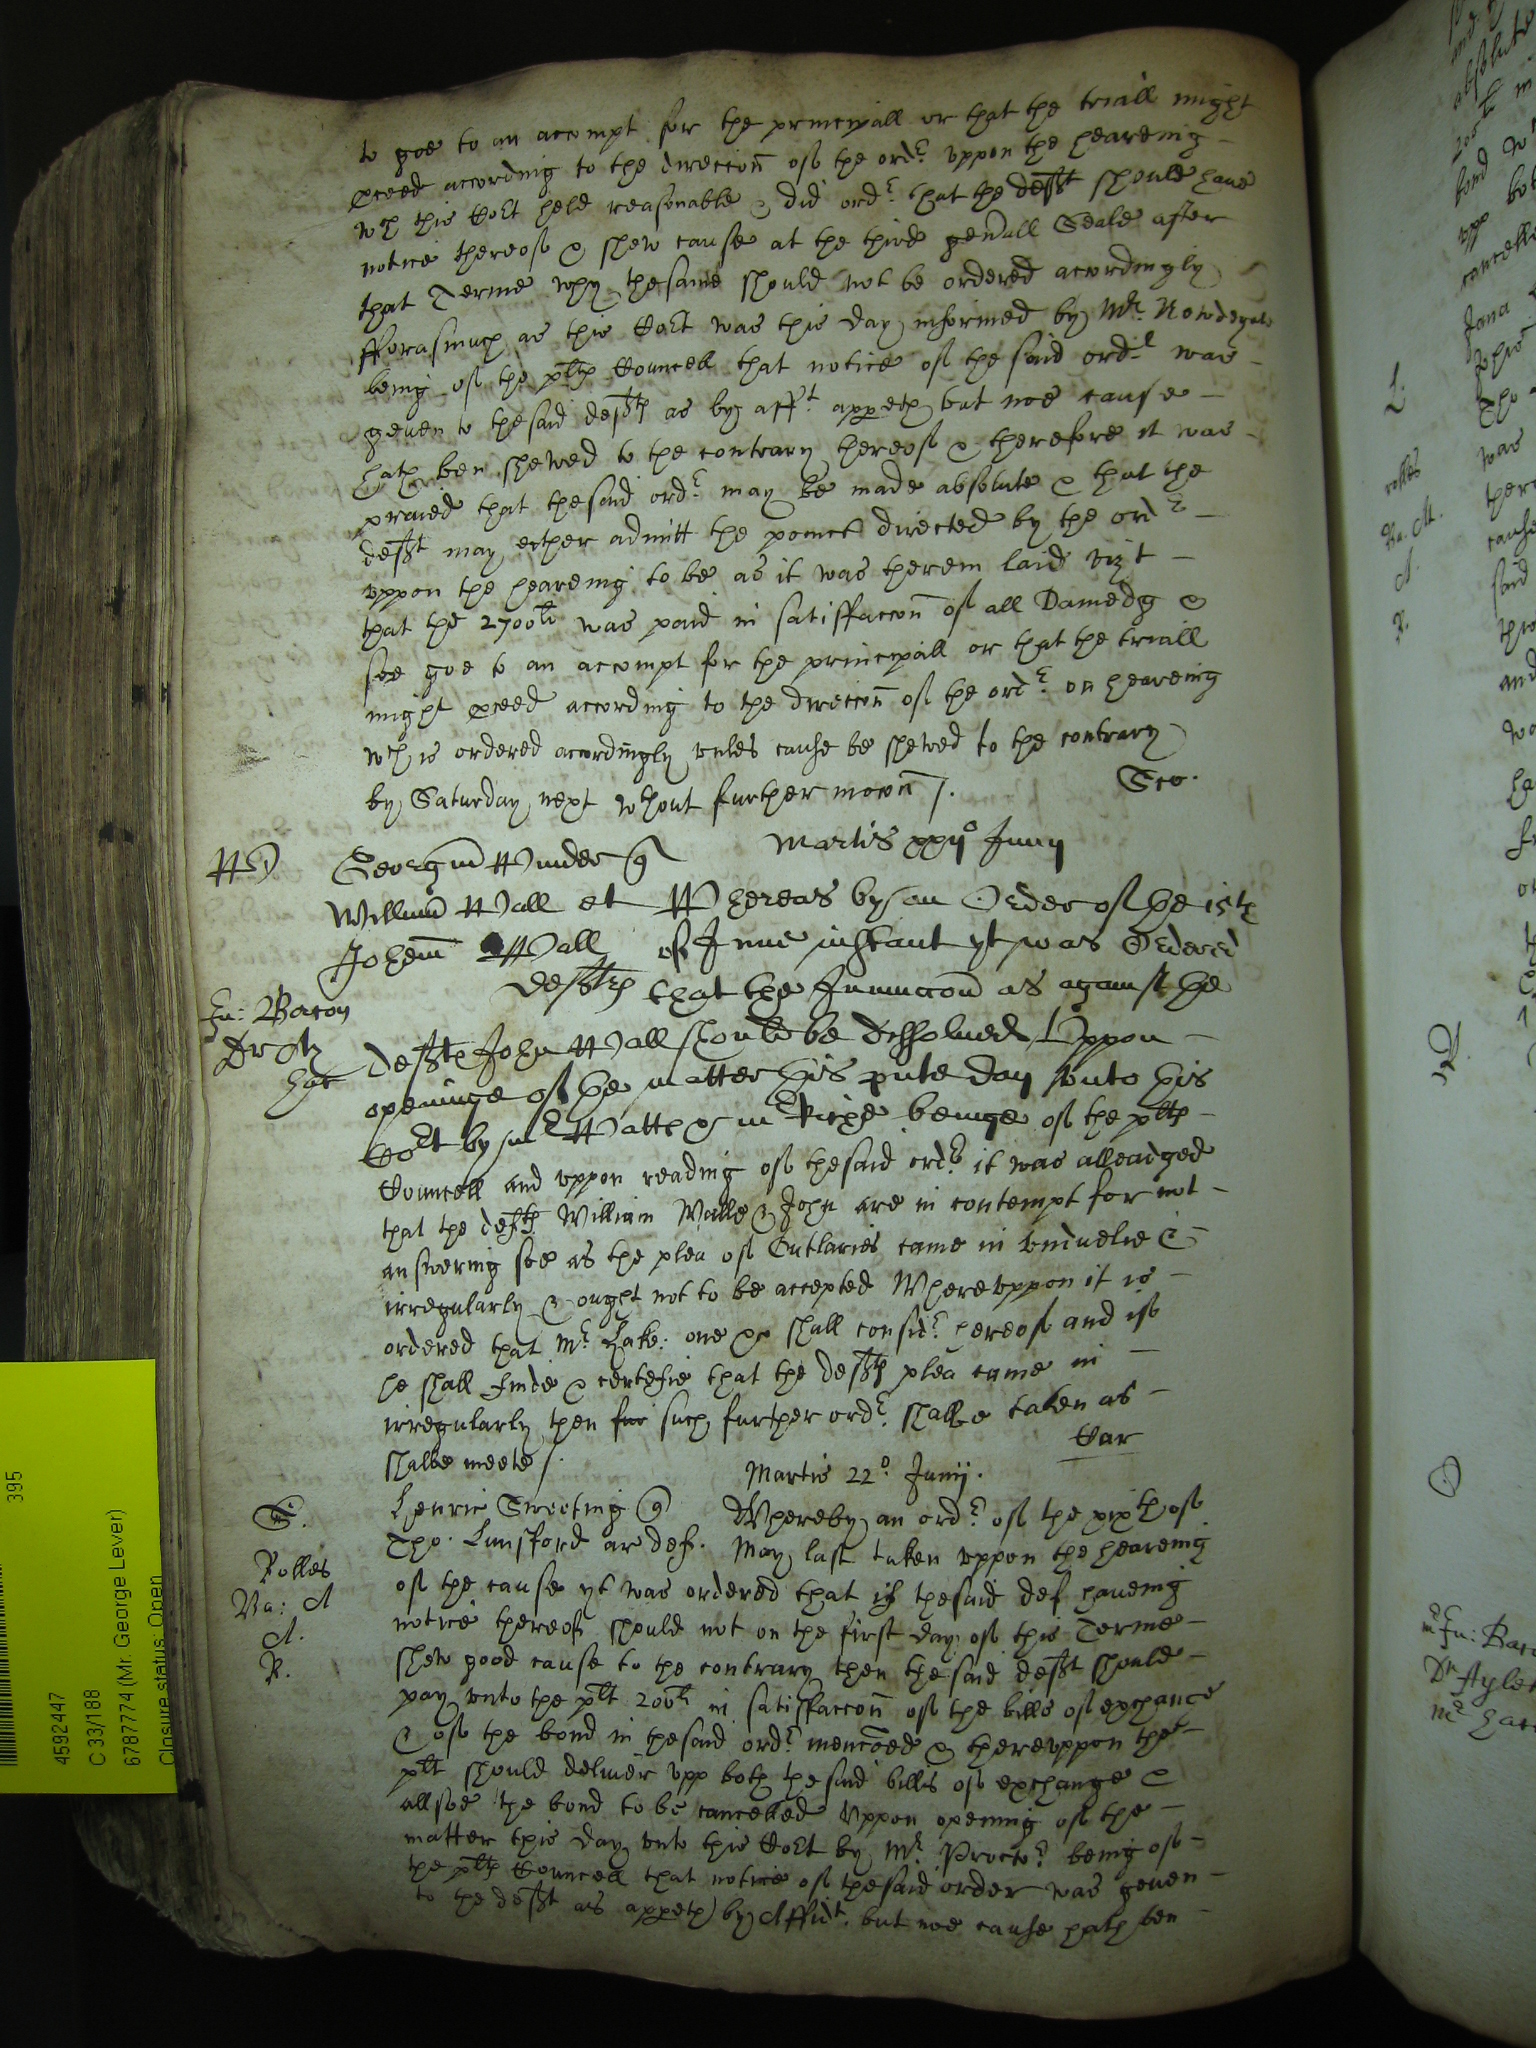 to goe to an accompt for the principall or that the triall might
pceed according to the direccon of the ordr uppon the heareing
wch this Cort held reasonable & did ordr that the defts should have
notice thereof & shew cause at the third genall Seale after
that Terme why thesame should not be ordered accordingly
fforasmuch as this Cort was this day informed by Mr
being of the plts Councell that notice of the said ordr was
geven to thesaid defts as by afft appeth but noe cause
hath ben shewed to the contrary hereof & therefore it was
praied that thesaid ordr may be made absolute & that the
defts may either admitt the pointe directed by the ordr
uppon the heareing to be as it was therein laid vizt
that the 2700li was paid in satisfaccon of all Damedg &
soe goe to an accompt for the principall or that the triall
might pceed according to the direccon of the ordr on heareing
wch is ordered accordingly unles cause be shewed to the contrary
by Saturday next wthout further mocon /.
Martis xxijo Junij
Willmm Wall et Whereas by an Order of the 15th
Johem Wall of June instant yt was Ordered
defts that the Iniunccon as against the
Fr: Bacon
deft John Wall should be dissolued Uppon
openinge of the matter this pnte day unto this
Cort by mr Watts & mr beinge of the plts
Councell and uppon reading of thesaid ordr it was alleadged
that the defts William Walle & John are in contempt for not
answering soe as the plea of Outlaries came in unduelie &
irregularly & ought not to be accepted Whereuppon it is
ordered that Mr Lake: one &c shall considr hereof and if
he shall finde & certefie that the defts plea came in
irregularly then such further ordr shalbe taken as
shalbe meete /.
Car
Martis 22o Junij.
S.
Henric Sweeting Whereby an ordr of the xixth of
Tho: Lunsford ar def. May last taken uppon the heareing
Rolles
of the cause yt was ordered that if thesaid def haueing
Va: A
notice thereof should not on the first day of this Terme
A.
shew good cause to the contrary then thesaid deft should
R.
pay unto the plt 200li in satisfaccon of the bills of exchance
& of the bond in thesaid ordr menconed & thereuppon the
plt should deliuer upp both thesaid bills of exchange &
allsoe the bond to be cancelled Uppon opening of the
matter this day unto this Cort by Mr Proctor being of
the plts Councell that notice of thesaid order was geven
to the deft as appeth by Affidt but noe cause hath ben
395
4592447
C 33/188
6787774 (Mr. George Lever)
Closure status: Open